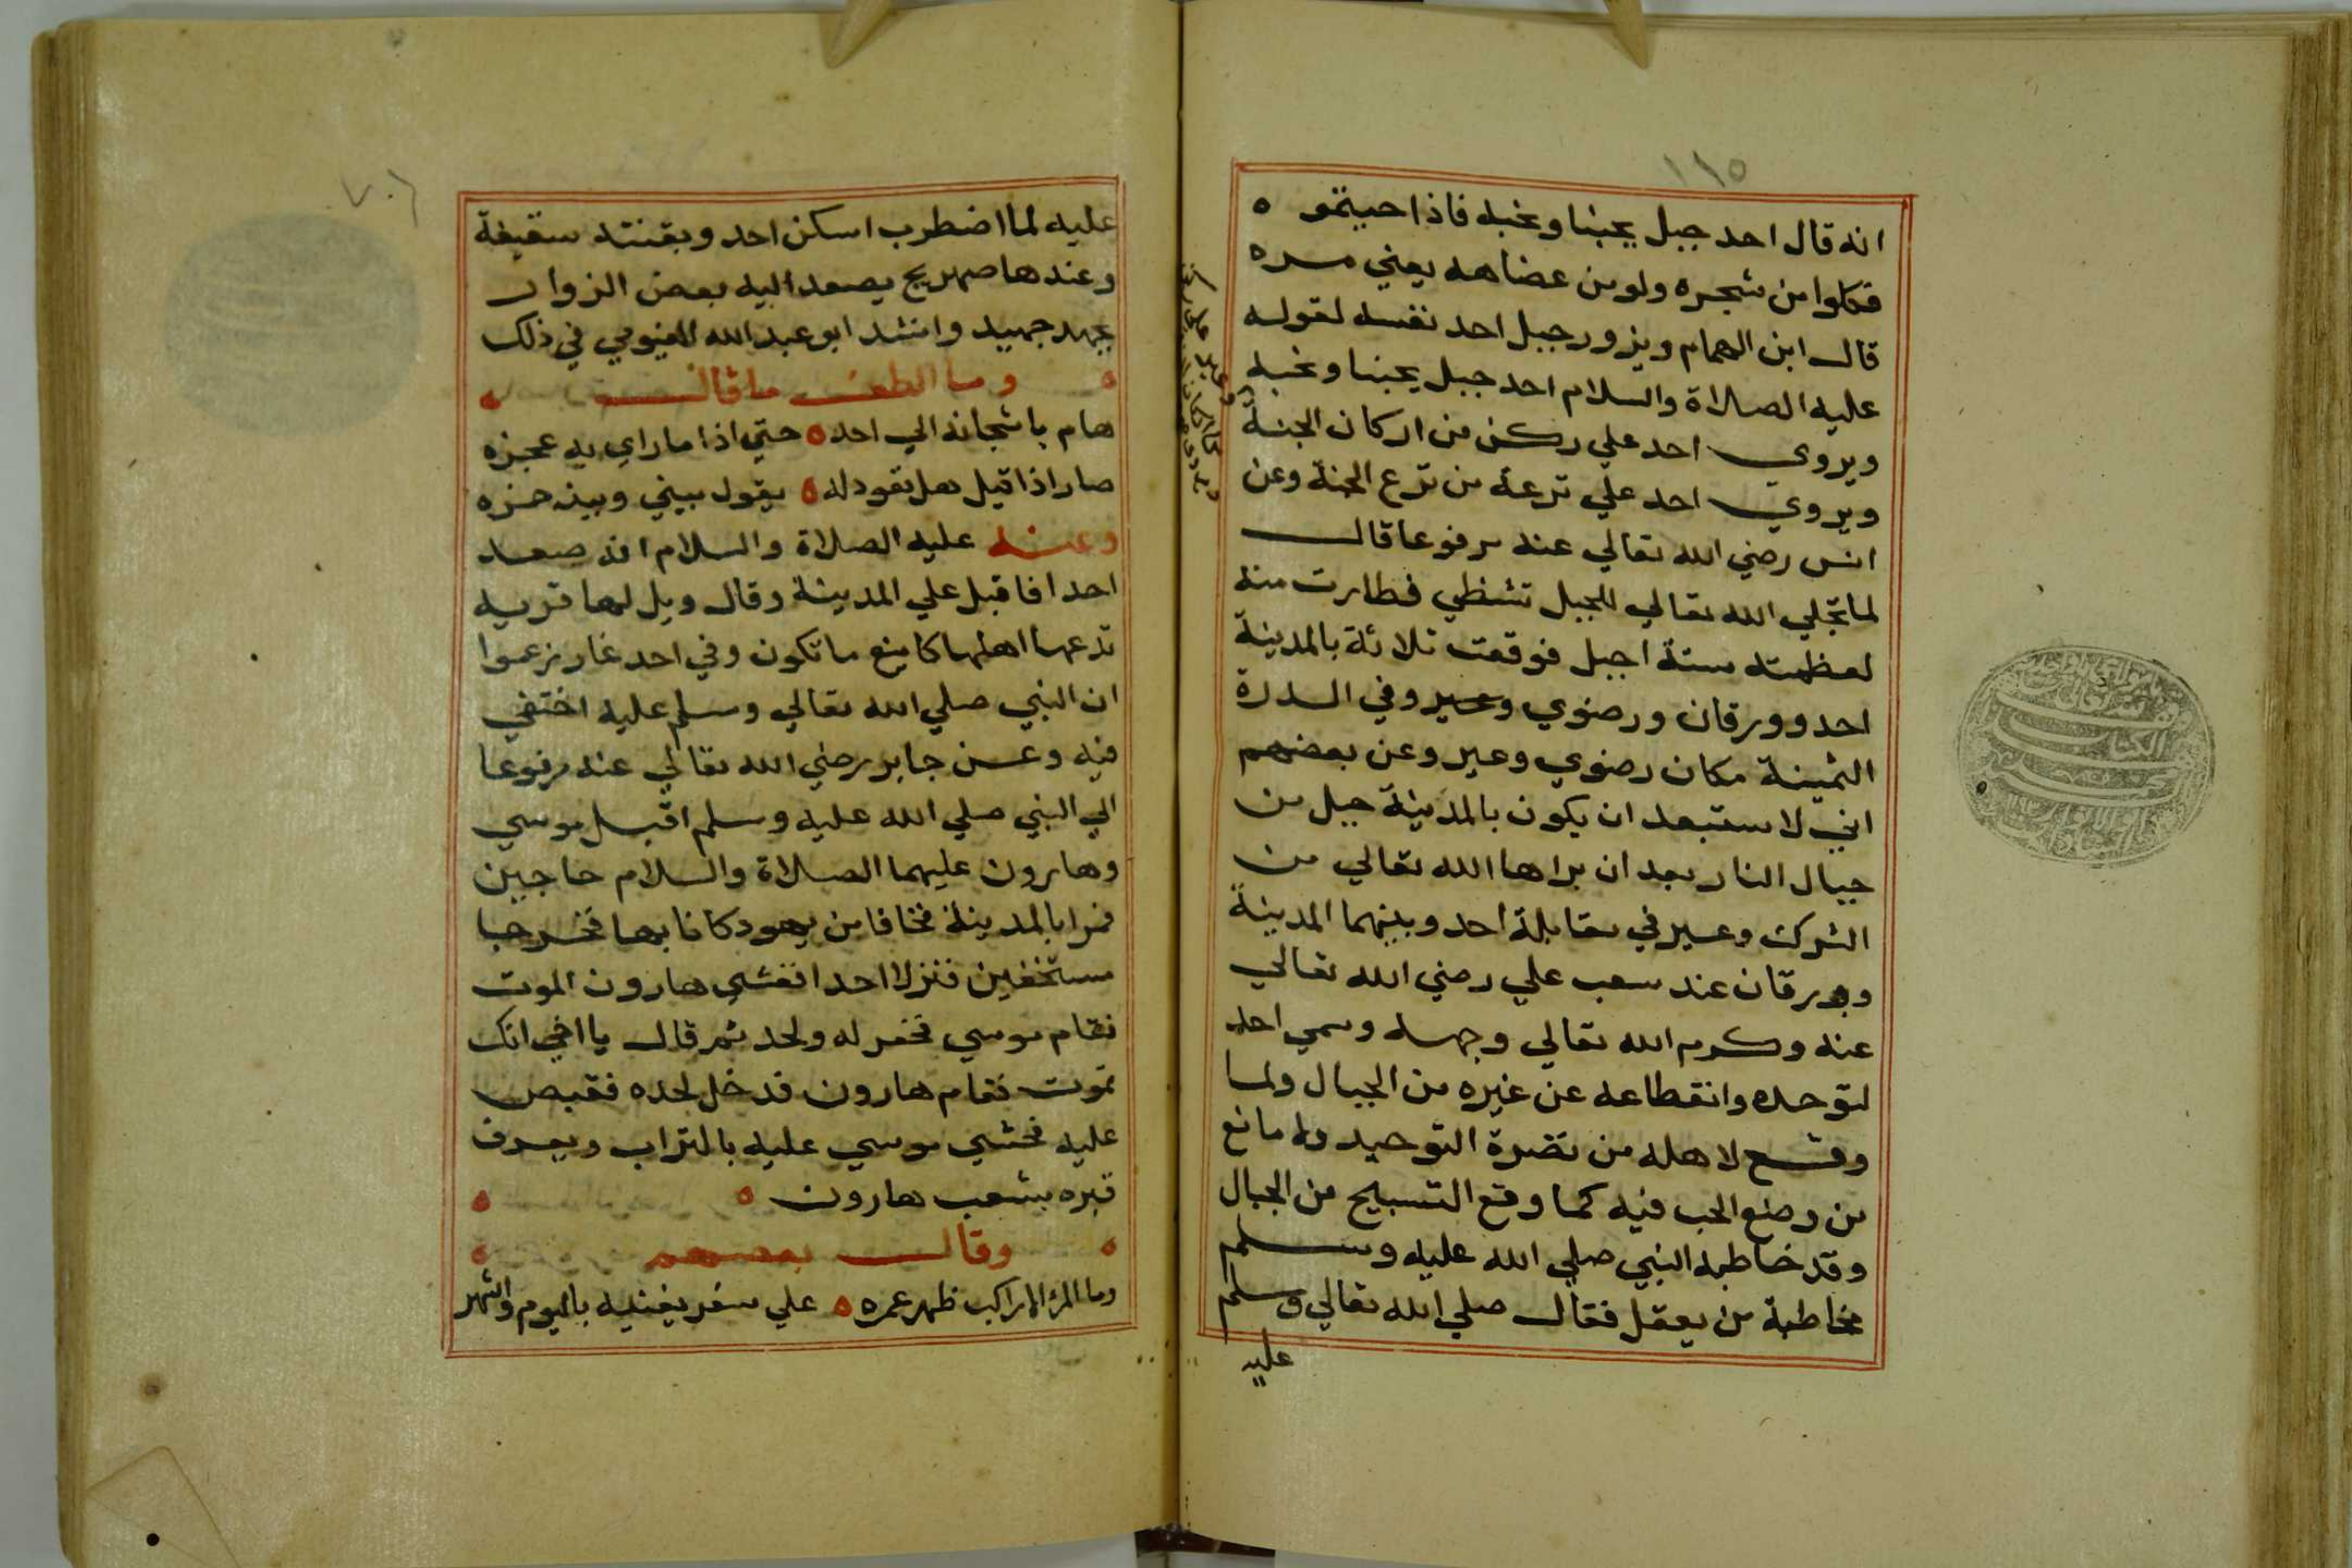 ١١٥
انه قال احد جبل يحبنا ونحبه فاذا جيتمو ه
فكلوا من شجره ولو من عضاهه يعني سدره
قال ابن الهمام ويزور جبل احد نفسه لقوله
عليه الصلاة والسلام احد جبل يحبنا ونحبه
ويروي احد علي ركن من اركان الجنة
ويروي احد علي ترعة من ترع الجنة وعن
انس رضي الله تعالي عنه مرفوعا قال
لما تجلي الله تعالي للجبل تشظي فطارت منه
لعظمته ستة اجبل فوقعت ثلاثة بالمدينة
احد وورقان ورضوي وعير وفي الدرة
الثمينة مكان رضوي وعير وعن بعضهم
اني لا ستبعد ان يكون بالمدينة جبل من
جبال النار بعد ان براها الله تعالي من
الشرك وعير في مقابلة احد وبينهما المدينة
وورقان عند سعب علي رضي الله تعالي
عنه وكرم الله تعالي وجهه وسمي احد
لتوحده وانقطاعه عن غيره من الجبال ولما
وقع لاهله من نضرة التوحيد ولا مانع
من وضع الحب فيه كما وقع التسبيح من الجبال
وقد خاطبه النبي صلي الله عليه وسلم
مخاطبة من يعقل فقال صلي الله تعالي وسلم
عليه
عليه لما اضطرب اسكن احد وبقنته سقيفة
وعندها صهريج يصعد اليه بعض الزوار
بجهد جهيد وانشد ابو عبد الله الفيومي في ذلك
وما الطف ما قال
هام باشجانه الي احد ه حتي اذا ما راي به عجزه
صار اذا قيل هل تعود له ه يقول بيني وبينه حمزه
وعنه عليه الصلاة والسلام انه صعد
احدا فاقبل علي المدينة وقال ويل لها قريه
تدعها اهلها كاينع ما تكون وفي احد غار يزعموا
ان النبي صلي الله تعالي وسلم عليه اختفي
فيه وعن جابر رضي الله تعالي عنه مرفوعا
الي النبي صلي الله عليه وسلم اقبل موسي
وهارون عليهما الصلاة والسلام حاجين
فمرا بالمدينة فخافا من يهود كانا بها فخرجا
مستخفين فنزلا احدا فغشي هارون الموت
فقام موسي فحفر له ولحد ثم قال يا اخي انك
تموت فقام هارون فدخل لحده فقبض
عليه فحشي موسي عليه بالتراب ويعرف
قبره بشعب هارون ه
وقال بعضهم
وما المرء الا راكب ظهر عمره ه علي سفر يفنيه باليوم والشهر